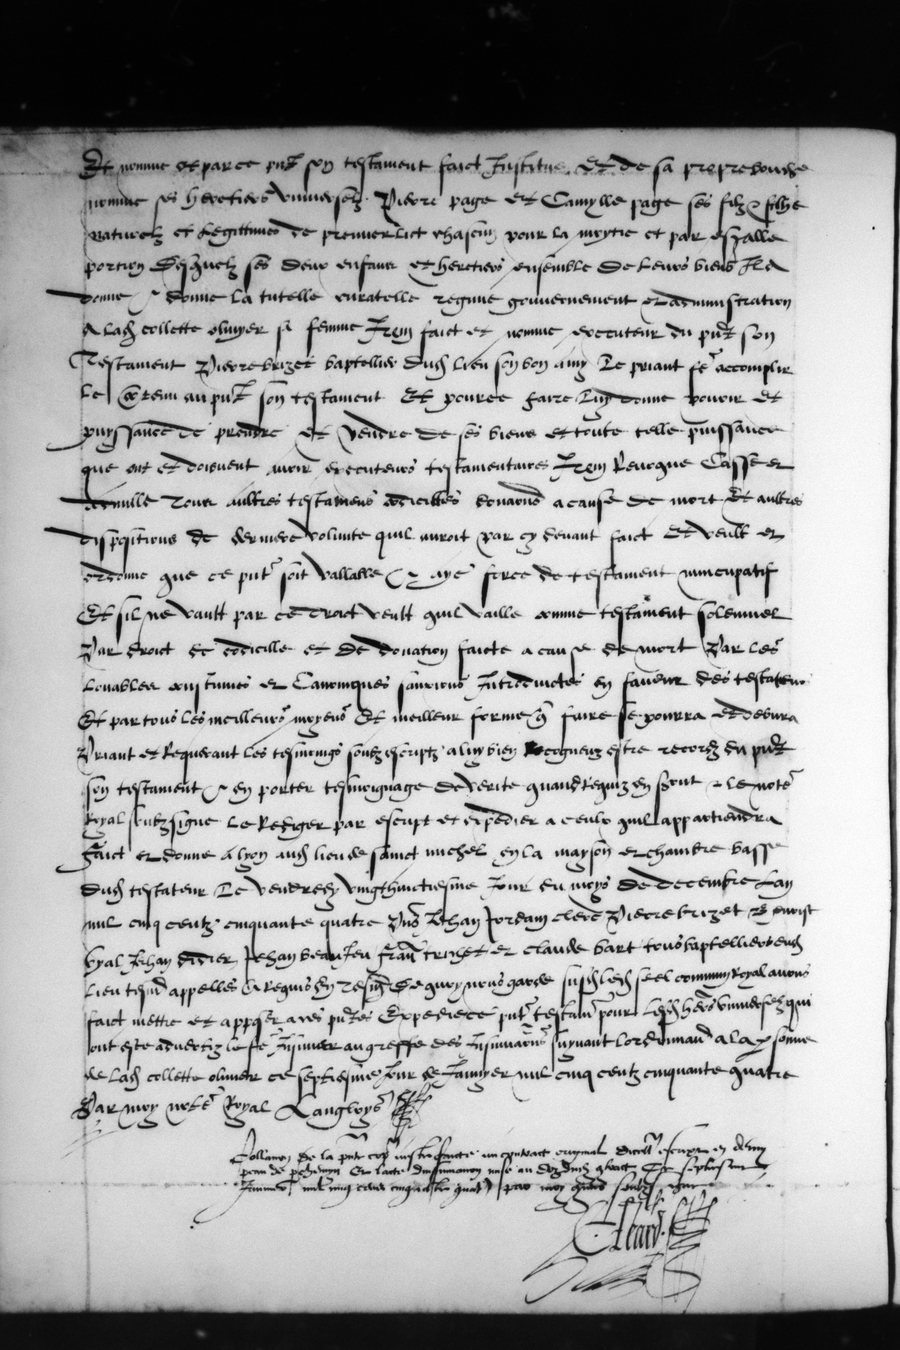 Et nomme et par ce pnt son testament faict Institue et de sa propre bouche
nomme ses heretiers universelz Pierre page et Camylle page ses filz & fille
naturelz et legittimes de premier lict chascun pour la moytie et par esgalle
portion Desquelz ses deux enfans et heretiers ensemble de leurs biens Il a
donne & donne la tutelle curatelle regime gouvernement et administration
A lad collette olivyer sa femme Item faict et nomme executeur du pnt son
Testament Pierre brizet baptellier dud lieu son bon amy Le priant fe accomplir
le contenu au pnt son testament Et pour ce faire luy donne pouvoir et
puyssance de prendre et vendre de ses biens et toute telle puissance
que ont et doivent avoir executeurs testamentaires Item Revoque Casse et
adnulle tous aultres testamens codicilles donations a cause de mort Et aultres
dispositions de derniere volunte quil auroit par cy devant faict Et veult et
ordonne que ce pnt soit vallable & aye force de testament nuncupatif
Et sil ne vault par ce droict veult quil vaille comme testament solemnel
Par droict de codicille et de donation faicte a cause de mort Par les
louables coustumes et Canoniques sanctions Introduictes en faveur des testateurs
Et par tous les meilleurs moyens Et meilleur forme que faire se pourra et debvra
Priant et Requerant les tesmoings soubz escriptz a luy bien cogneuz estre recordz du pnt
son testament & en porter tesmoignage de verite quand Requiz en seront & le notere
Royal soubzsigne le Rediger par escript et expedier a ceulx quil appartiendra
faict et donne a lyon aud lieu de sainct michel en la mayson et chambre basse
dud testateur Le vendredy vingthuictiesme Jour du moys de decembre lan
mil cinq centz cinquante quatre Pns Jehan Jordain clerc Pierre brizet benoist
byal Jehan didier Jehan beaujeu Franc trichet et claude bart tous baptelliers dud
lieu tesmoings appelles & Requis En tesmoing de quoy nous garde susd led seel commun Royal avons
faict mettre et apposer a ces pntes Expediee pnt testament pour lesd hers universelz qui
ont este advertiz le fe Insinuer au greffe des Insinuations suyvant lordonnance a la psonne
de lad collette olivier ce septiesme Jour de Janvyer mil cinq centz cinquante quatre
Par moy notere Royal Langloys
Collation de la pnte coppie a este faicte a son contract original escript en
peau de parchemin Et lacte dinsinuation mise au doz
Janvier mil cinq cens cinquante quatre par moy greffier soubz signe